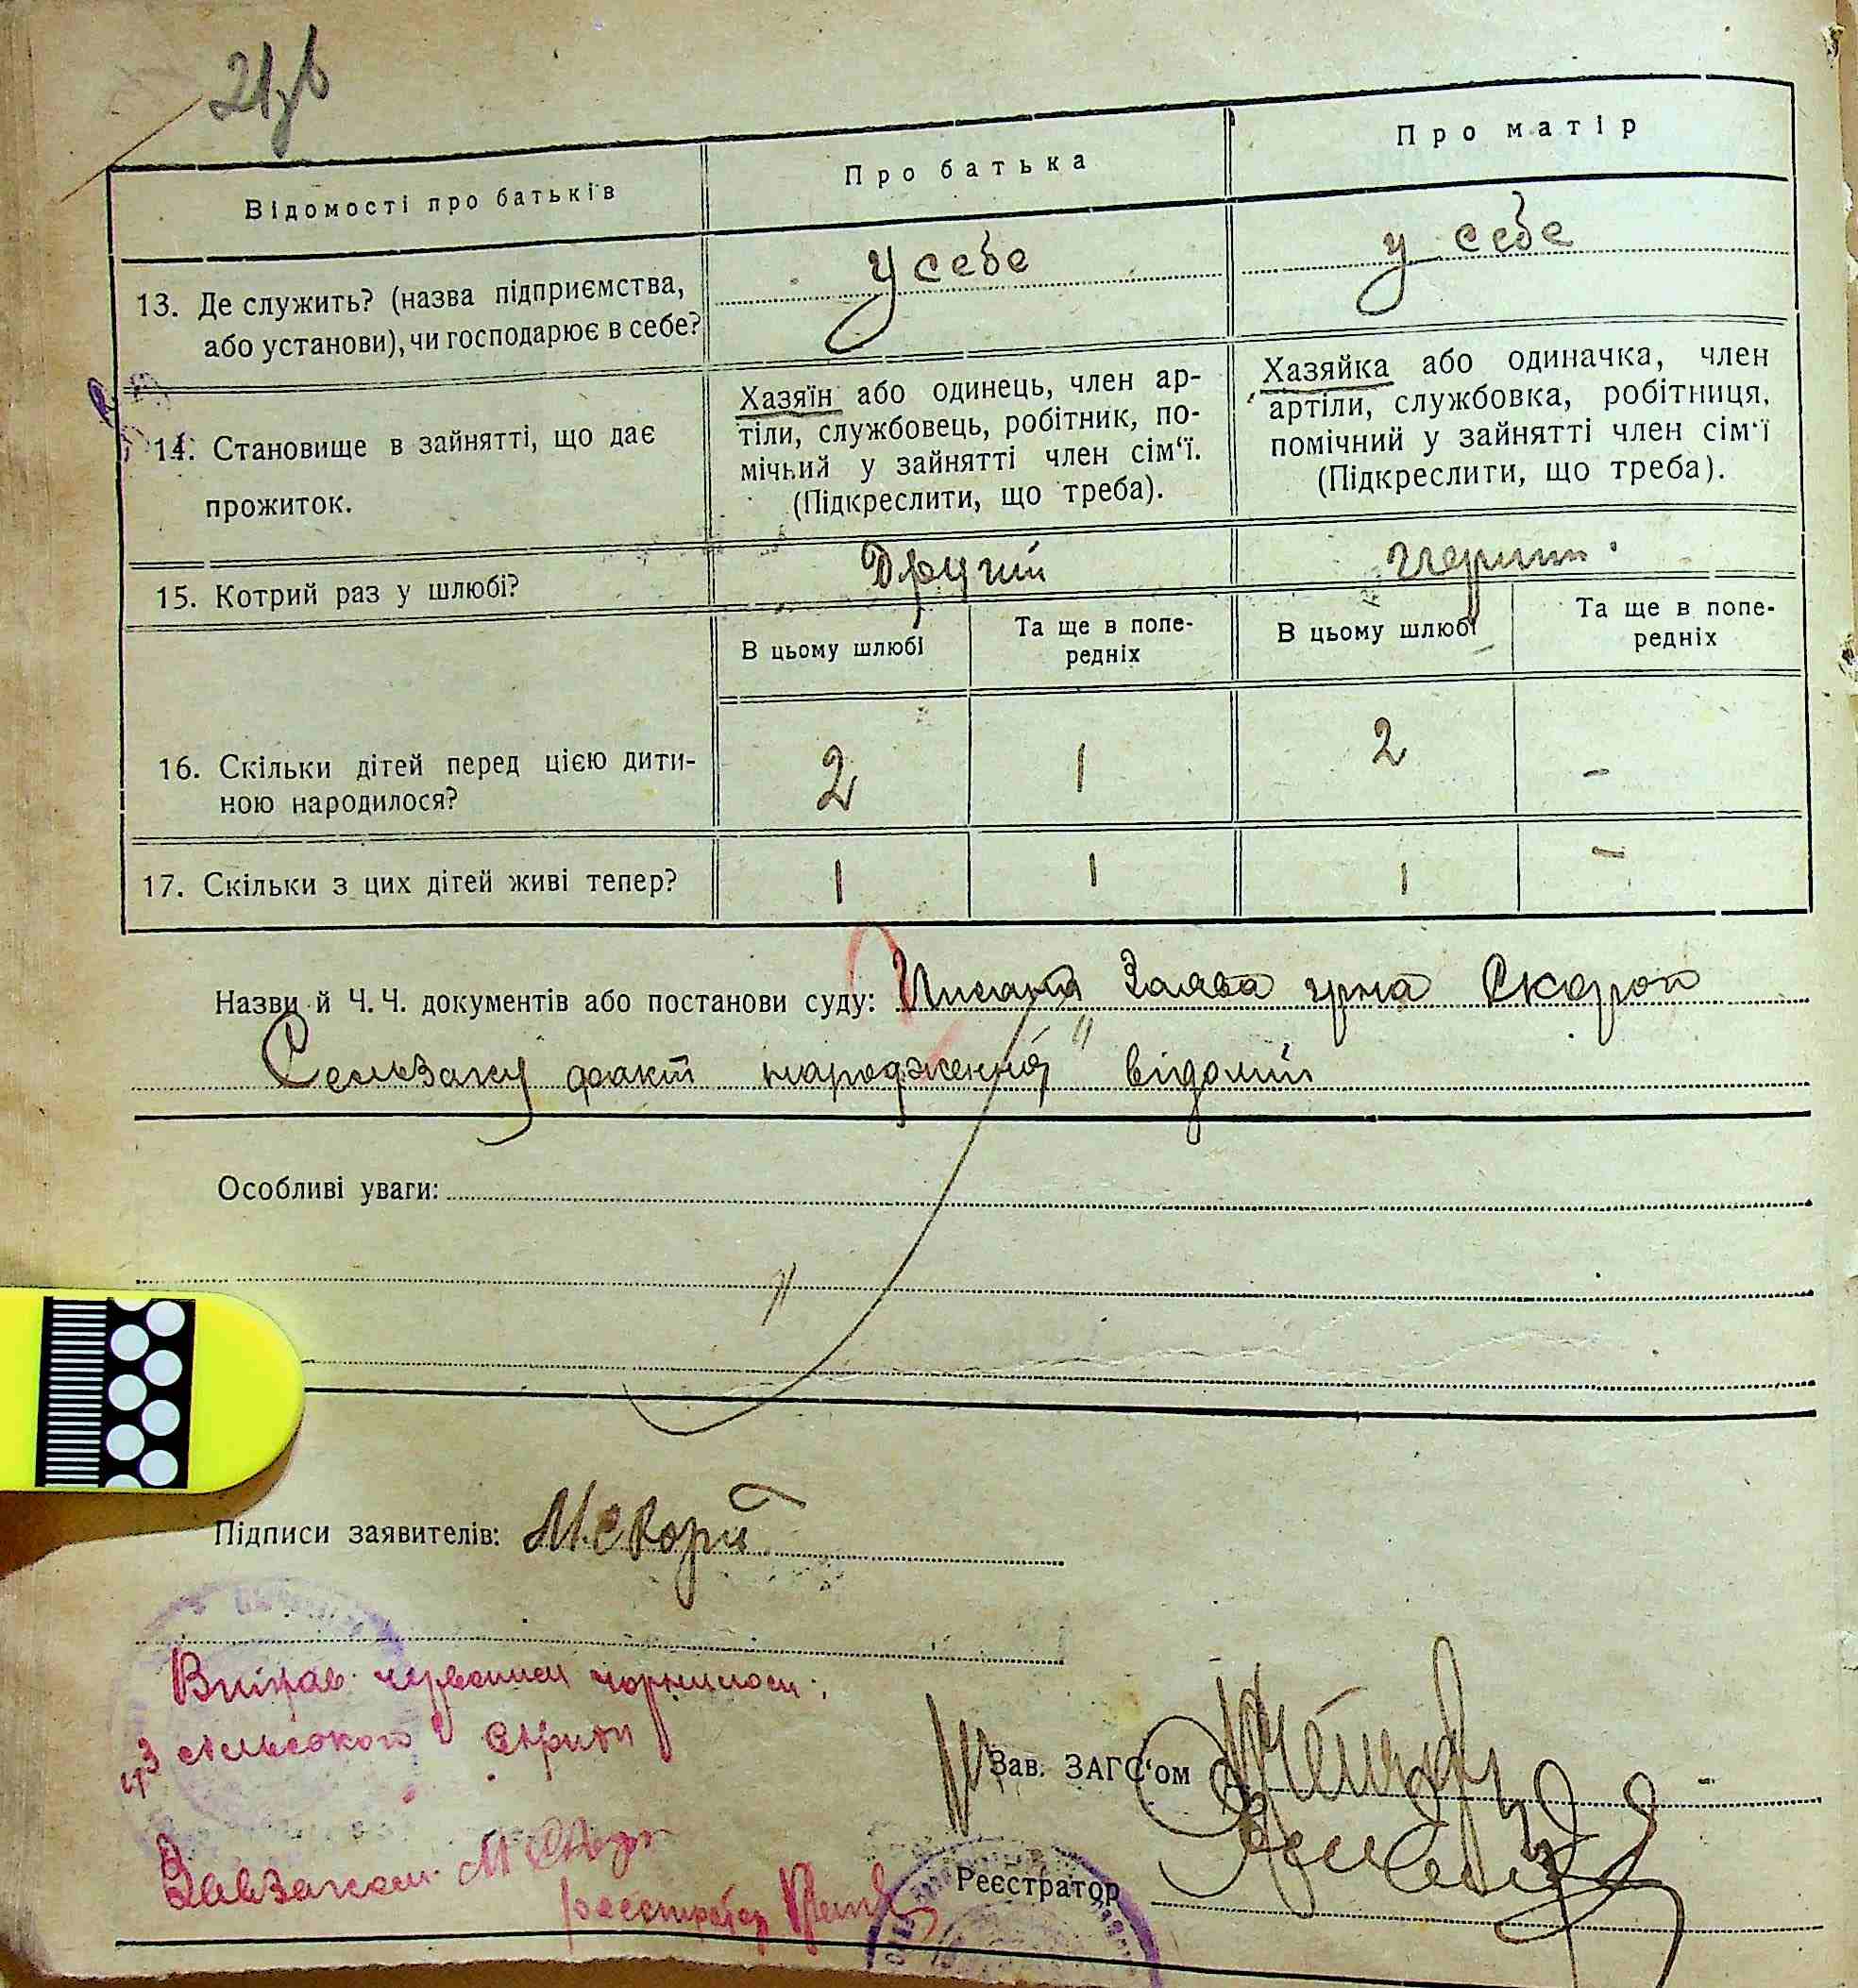 21зв
Відомості про батьків
Про батька
Про матір
13. Де служить? (назва підприємства,
або установи), чи господарює в себе?
у себе
у себе
14. Становище в зайнятті, що дає
прожиток.
Хазяїн або одинець, член ар-
тіли, службовець, робітник, по-
мічний у зайнятті член сім‘ї.
(Підкреслити, що треба).
Хазяйка або одиначка, член
артіли, службовка, робітниця,
помічний у зайнятті член сім‘ї
(Підкреслити, що треба).
15. Котрий раз у шлюбі?
Другий
В цьому шлюбі
Та ще в попе-
редніх
В цьому шлюбі
Та ще в попе-
редніх
16. Скільки дітей перед цією дити-
ною народилося?
2
1
2
-
17. Скільки з цих дітей живі тепер?
1
1
1
-
Назви й Ч. Ч. документів або постанови суду: Заява Скорон
факт народження відомий
Особливі уваги:
Підписи заявителів:
червоним чорнилом
сільського
Зав. ЗАГС‘ом
Реєстратор